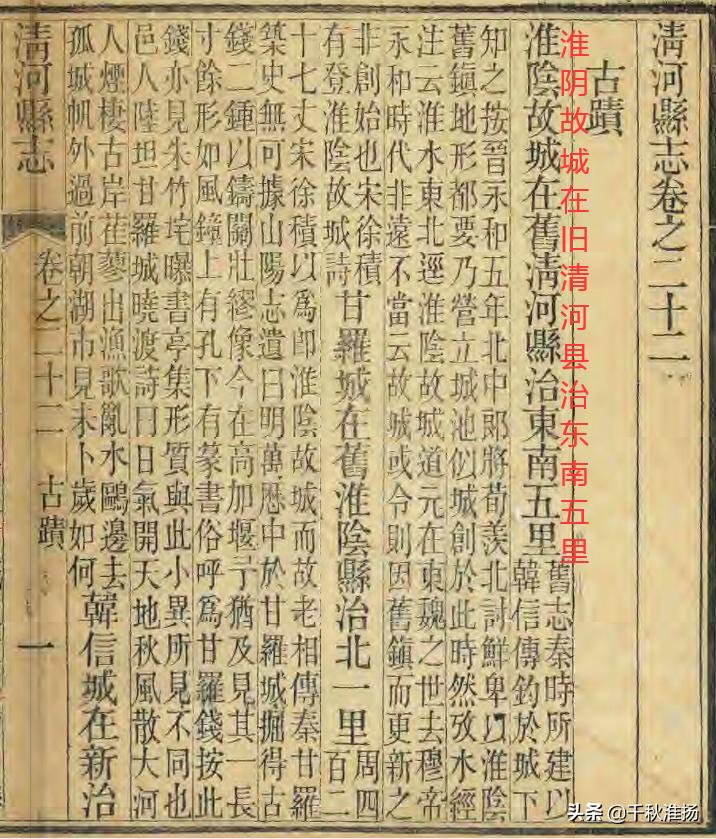 清河縣志卷之二十二
古蹟
淮阴故城在旧清河县治东南五里
淮陰故城在舊清河縣治東南五里
舊志秦時所建以
韓信傳釣於城下
知之按晉永和五年北中郎將荀羨北討鮮卑以淮陰
舊鎮地形都要乃營立城池似城創於此時然攷水經
注云淮水東北逕淮陰故城道元在東魏之世去穆帝
永和時代非遠不當云故城或令則因舊鎮而更新之
非創始也宋徐積
有登淮陰故城詩
甘羅城在舊淮陰縣治北一里
周四
百二
十七丈宋徐積以爲卽淮陰故城而故老相傳秦甘羅
築史無可據山陽志遺曰明萬歷中於甘羅城掘得古
錢二鍾以鑄關壯繆像今在高加堰予猶及見其一長
寸餘形如風鐘上有孔下有篆書俗呼爲甘羅錢按此
錢亦見朱竹垞曝書亭集形質與此小異所見不同也
邑人陸坦甘羅城曉渡詩曰日氣開天地秋風散大河
人煙棲古岸萑蓼出漁歌亂水鷗邊去
孤城帆外過前朝湖市見未卜歲如何
韓信城在新治
清河縣志
卷之二十二
古蹟
一
头条 @千秋淮扬